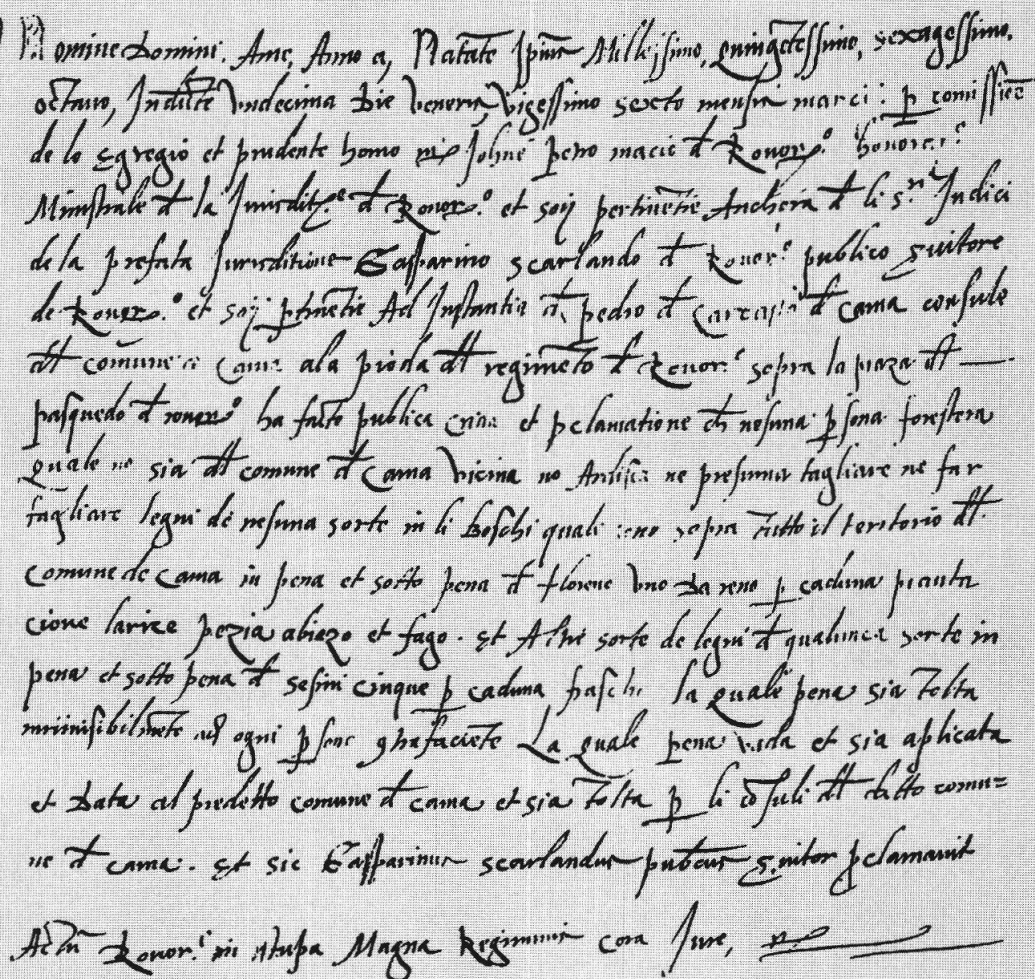 Nomine Domini. Ame, Anno a, Natate Millessimo, quingetessimo, sexagessimo,
octavo, Indicte Undecima Die Veneris Vigessimo sexto mensis marci: p comissiõe
de lo egregio et prudente homo pero macic d Rover.o honorer.e
Ministrale d la Iurisdit.e d Rover.o et soy pertinetie Anchera d li s.ri Iudici
de la prefata Iurisditione Gasparino scarlando d Rover.o publico s.vitore
de Rover.o et soy ptinetie Ad Instantia d pedro d d cama consule
dl comune d cama ala dl regimeto d Rover.o sopra la piaza dl
pasquedo d rover.o ha fatto publica crida et pclamatione ch nesuna psona forestera
quale no sia dl comune d Cama Vicina no Ardisca ne presuma tagliare ne far
tagliare legni de nesuna sorte in li Boschi quali sono sopra Tutto il teritorio dl
Comune de Cama in pena et sotto pena d florene Uno Da reno p caduna pianta
cioue larice pezia abiezo et fago. Et Altri sorte de legni d qualunca sorte in
pena et sotto pena d sesini cinque p caduna frasch. la quale pena sia Tolta
ad ogni psone La quale pena vada et sia aplicata
et Data al predetto comune d cama et sia Tolta p li cõsuli dl ditto comu=
ne d cama. Et sic Gasparinus scarlandus s.vitor pclamavit
Actũ Rover.i in stupa Magna Regiminis cora Iure,